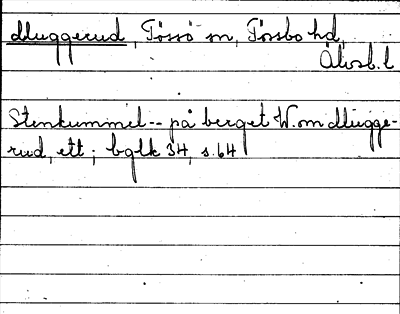 Muggerud, Tössö sn, Tössbo hd,
Älvsb. l
Stenkummel -- på berget W. om Mugge-
rud, ett; bglk 34, s. 64